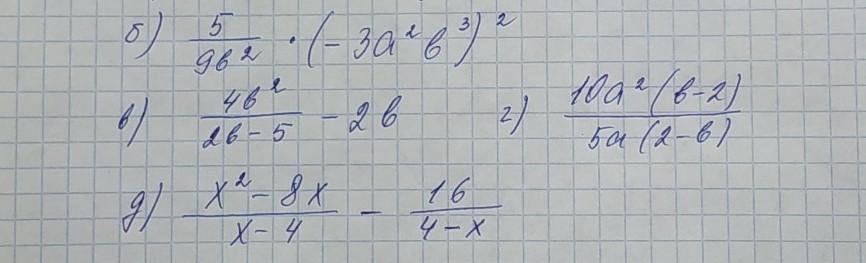 б) 5/(9b²) · (-3a²b³)²
в) 4b²/(2b-5) - 2b г) 10a²(b-2)/(5a(2-b))
д) (x²-8x)/(x-4) - 16/(4-x)